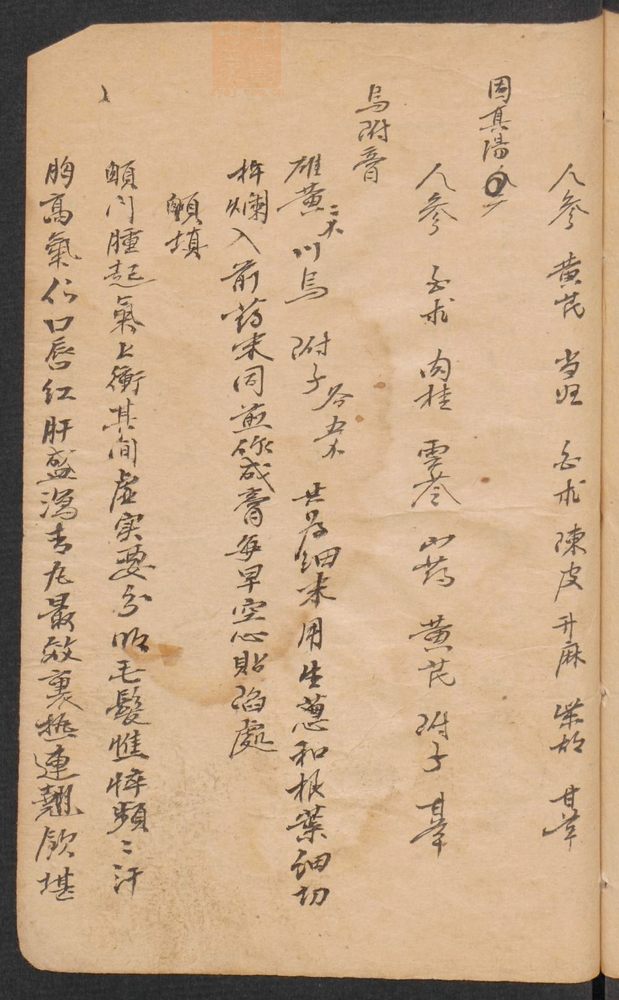 人参 黄芪 当归 白术 陳皮 升麻 柴胡 甘草
固真湯
人参 白术 肉桂 雲苓 山药 黄芪 附子 甘草
烏附膏
雄黄二夕 川烏 附子各五夕 共為細末用生葱和根葉細切
杵爛入前药末同煎作成膏每早空心貼陷處
顖填
顖门腫起氣上衝其间虚实要分明毛髮憔悴頻〻汗
胸髙氣促口唇红肝盛瀉青丸最效裏熱連翹飲堪